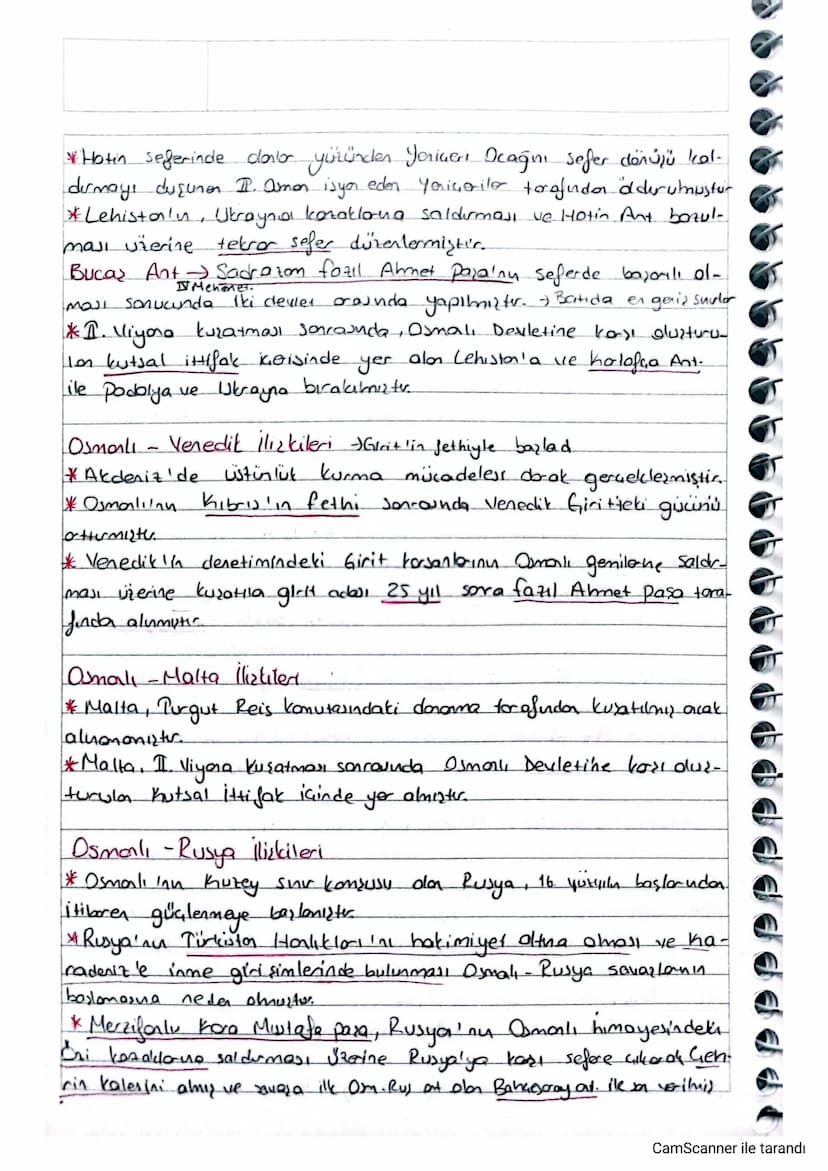 * Hotin seferinde olanlar yüzünden Yeniçeri Ocağını sefer dönüşü kal-
dırmayı düşünen II. Osman isyan eden Yeniçeriler tarafından öldürülmüştür
* Lehistan'ın, Ukrayna kazaklarına saldırması ve Hotin Ant bozul-
ması üzerine tekrar sefer düzenlenmiştir.
Bucaş Ant → Sadrazam fazıl Ahmet Paşa'nın seferde başarılı ol-
IV Mehmet
ması sonucunda iki devlet arasında yapılmıştır. → Batıda en geniş sınırlar
* II. Viyana kuşatması sonrasında, Osmalı Devletine karşı oluşturu-
lan kutsal ittifak içerisinde yer alan Lehistan'a ve karlofça Ant.
ile Podolya ve Ukrayna bırakılmıştır.
Osmanlı - Venedik İlişkileri → Girit'in fethiyle başladı
* Akdeniz'de üstünlük kurma mücadelesi olarak gerçekleşmiştir.
* Osmanlı'nın Kıbrıs'ın fethi sonrasında Venedik Girit'teki gücünü
arttırmıştır.
* Venedik'in denetimindeki Girit korsanlarının Osmanlı gemilerine saldır-
ması üzerine kuşatıla girit adası 25 yıl sonra fazıl Ahmet Paşa tara-
fından alınmıştır.
Osmanlı - Malta İlişkileri
* Malta, Turgut Reis komutasındaki donanma tarafından kuşatılmış ancak
alınamamıştır.
* Malta, II. Viyana Kuşatması sonrasında Osmanlı Devletine karşı oluş-
turulan Kutsal İttifak içinde yer almıştır.
Osmanlı - Rusya İlişkileri
* Osmanlı'nın Kuzey sınır komşusu olan Rusya, 16. yüzyılın başlarından
itibaren güçlenmeye başlamıştır.
* Rusya'nın Türkistan Hanlıkları'nı hakimiyet altına alması ve Ka-
radeniz'e inme girişimlerinde bulunması Osmalı - Rusya savaşlarının
başlamasına neden olmuştur.
* Merzifonlu Kara Mustafa paşa, Rusya'nın Osmanlı himayesindeki
Özi kazaklarına saldırması üzerine Rusya'ya karşı sefere çıkarak Çeh-
rin kalesini almış ve savaşa ilk Osm-Rus ant olan Bahçesaray ant. ile son verilmiş
CamScanner ile tarandı